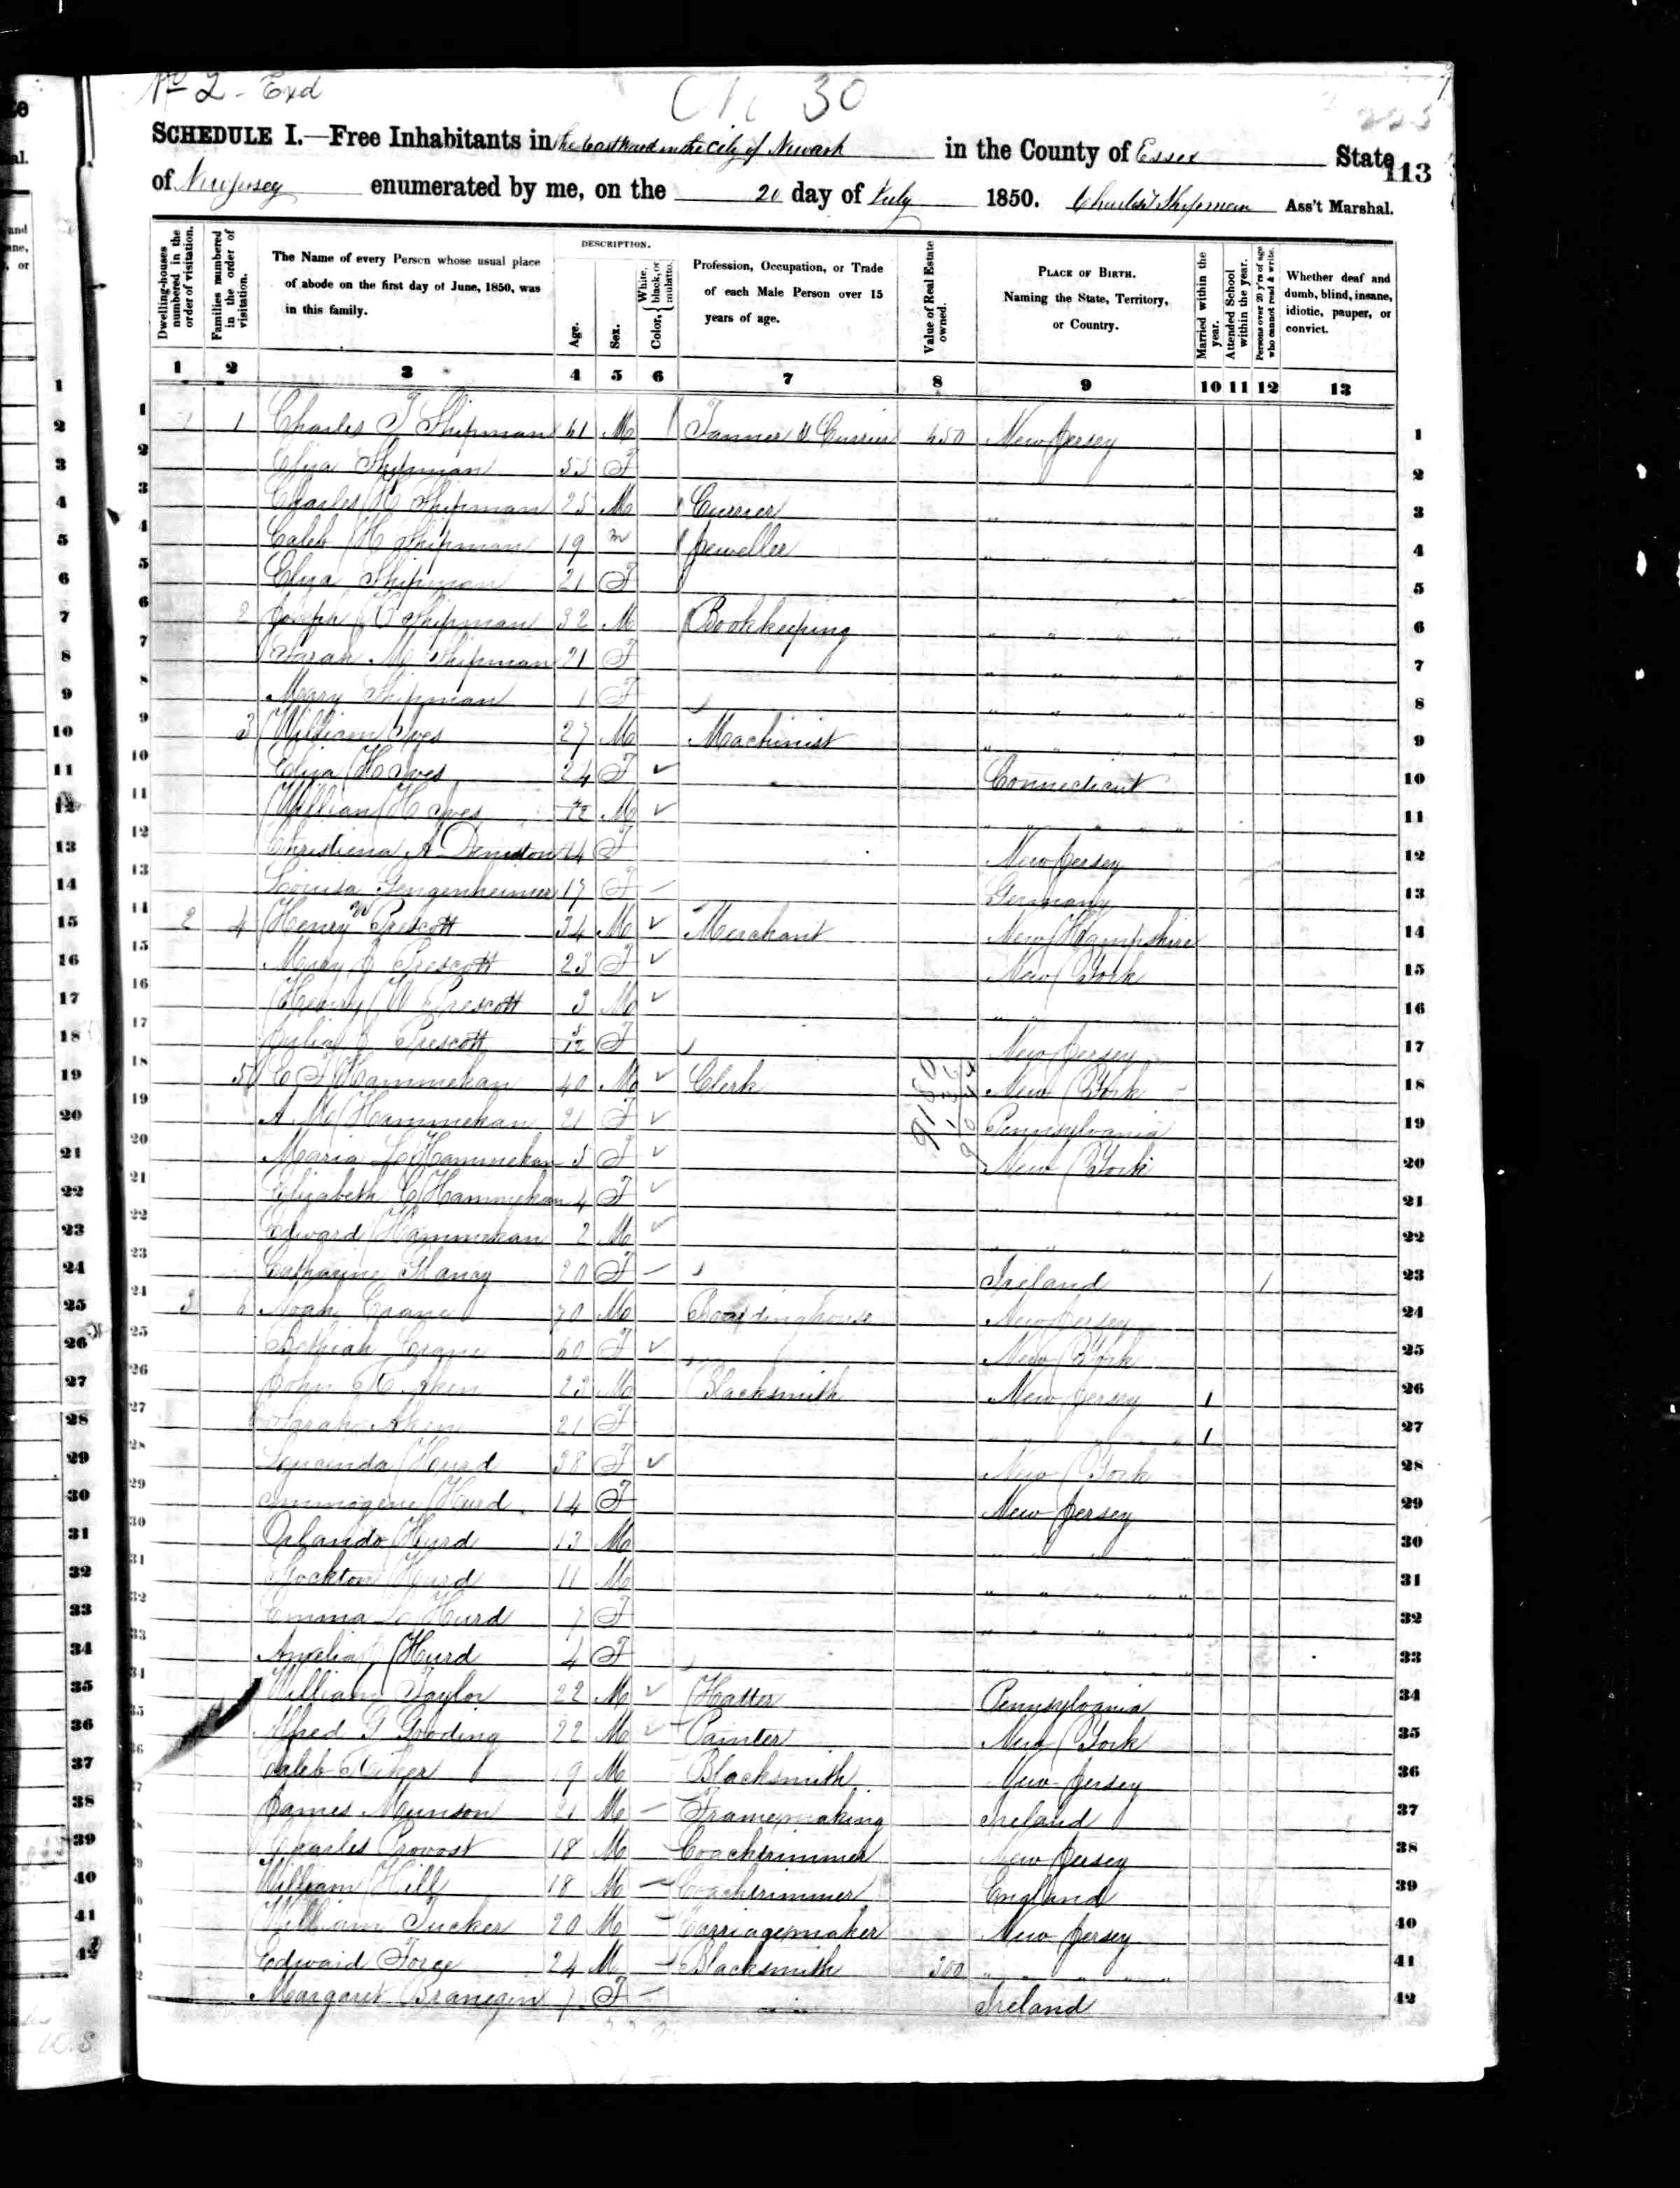 No 2 - Exd 30
225
SCHEDULE I.—Free Inhabitants in the East Ward in the City of Newark in the County of Essex State 113
of New Jersey enumerated by me, on the 20 day of July 1850. Charles T Shipman Ass't Marshal.
Dwelling-houses numbered in the order of visitation. Families numbered in the order of visitation. The Name of every Person whose usual place of abode on the first day of June, 1850, was in this family. DESCRIPTION. Age. Sex. Color, { White, black, or mulatto. Profession, Occupation, or Trade of each Male Person over 15 years of age. Value of Real Estate owned. PLACE OF BIRTH. Naming the State, Territory, or Country. Married within the year. Attended School within the year. Persons over 20 y'rs of age who cannot read & write. Whether deaf and dumb, blind, insane, idiotic, pauper, or convict.
1 2 3 4 5 6 7 8 9 10 11 12 13
1 1 Charles T Shipman 61 M Tanner & Currier 450 New Jersey 1
2 Eliza Shipman 55 F 2
3 Charles H Shipman 25 M Currier " " " " 3
4 Caleb H Shipman 19 m Jeweller " " " " 4
5 Eliza Shipman 21 F " " " " 5
6 2 Joseph C Shipman 32 M Bookkeeping " " " " 6
7 Sarah M Shipman 21 F " " " " 7
8 Mary Shipman 1 F " " " " 8
9 3 William Ives 27 M Machinist " " " " 9
10 Eliza H Ives 24 F ✓ Connecticut 10
11 William H Ives /12 M ✓ " " " " 11
12 Christiena A Deniston 14 F New Jersey 12
13 Louisa Gengenheimer 17 F – Germany 13
14 2 4 Henry W Prescott 34 M ✓ Merchant New Hampshire 14
15 Mary J Prescott 23 F ✓ New York 15
16 Henry W Prescott 3 M ✓ " " 16
17 Julia J Prescott 5/12 F New Jersey 17
18 5 C F Hammekan 40 M ✓ Clerk New York 18
19 A M Hammekan 21 F ✓ Pennsylvania 19
20 Maria L Hammekan 5 F ✓ New York 20
21 Elizabeth C Hammekan 4 F ✓ " " 21
22 Edward Hammekan 2 M ✓ " " " 22
23 Catharine Clancy 20 F – Ireland 1 23
24 3 6 Noah Crane 70 M Boardinghouse New Jersey 24
25 Bethiah Crane 60 F ✓ New York 25
26 John Aken 23 M Blacksmith New Jersey 1 26
27 Sarah Aken 21 F " " " " 1 27
28 Hurd 38 F ✓ New York 28
29 Immogene Hurd 14 F New Jersey 29
30 Orlando Hurd 13 M " " " " 30
31 Stockton Hurd 11 M " " " " 31
32 Emma L Hurd 7 F " " " " 32
33 Amelia J Hurd 4 F " " " " 33
34 William Taylor 22 M ✓ Hatter Pennsylvania 34
35 Alfred G Gooding 22 M ✓ Painter New York 35
36 Caleb 19 M Blacksmith New Jersey 36
37 James Munson 21 M – Framemaking Ireland 37
38 Charles Provost 18 M Coachtrimmer New Jersey 38
39 William Hill 18 M – Coachtrimmer England 39
40 William Tucker 20 M – Carriagemaker New Jersey 40
41 Edward Force 24 M Blacksmith 300 " " " " 41
42 Margaret Branegen 7 F – Ireland 42